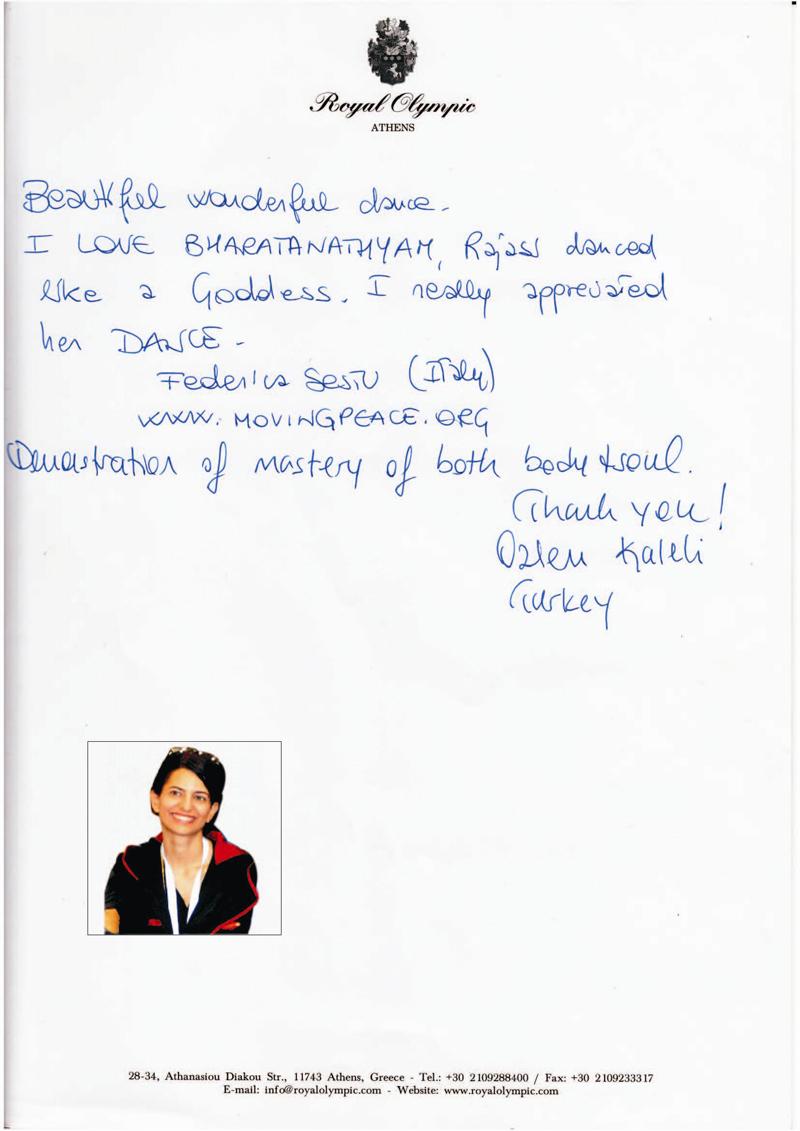 Royal Olympic
ATHENS
Beautiful wonderful dance.
I LOVE BHARATANATHYAM, Rajasi danced
like a Goddess. I really appreviated
her DANCE -
Federica Sestu (Italy)
www.MOVINGPEACE.ORG
Demonstration of mastery of both body & soul.
Thank you!
Ozlen Kaleli
Turkey
28-34, Athanasiou Diakou Str., 11743 Athens, Greece - Tel.: +30 2109288400 / Fax: +30 2109233317
E-mail: info@royalolympic.com - Website: www.royalolympic.com